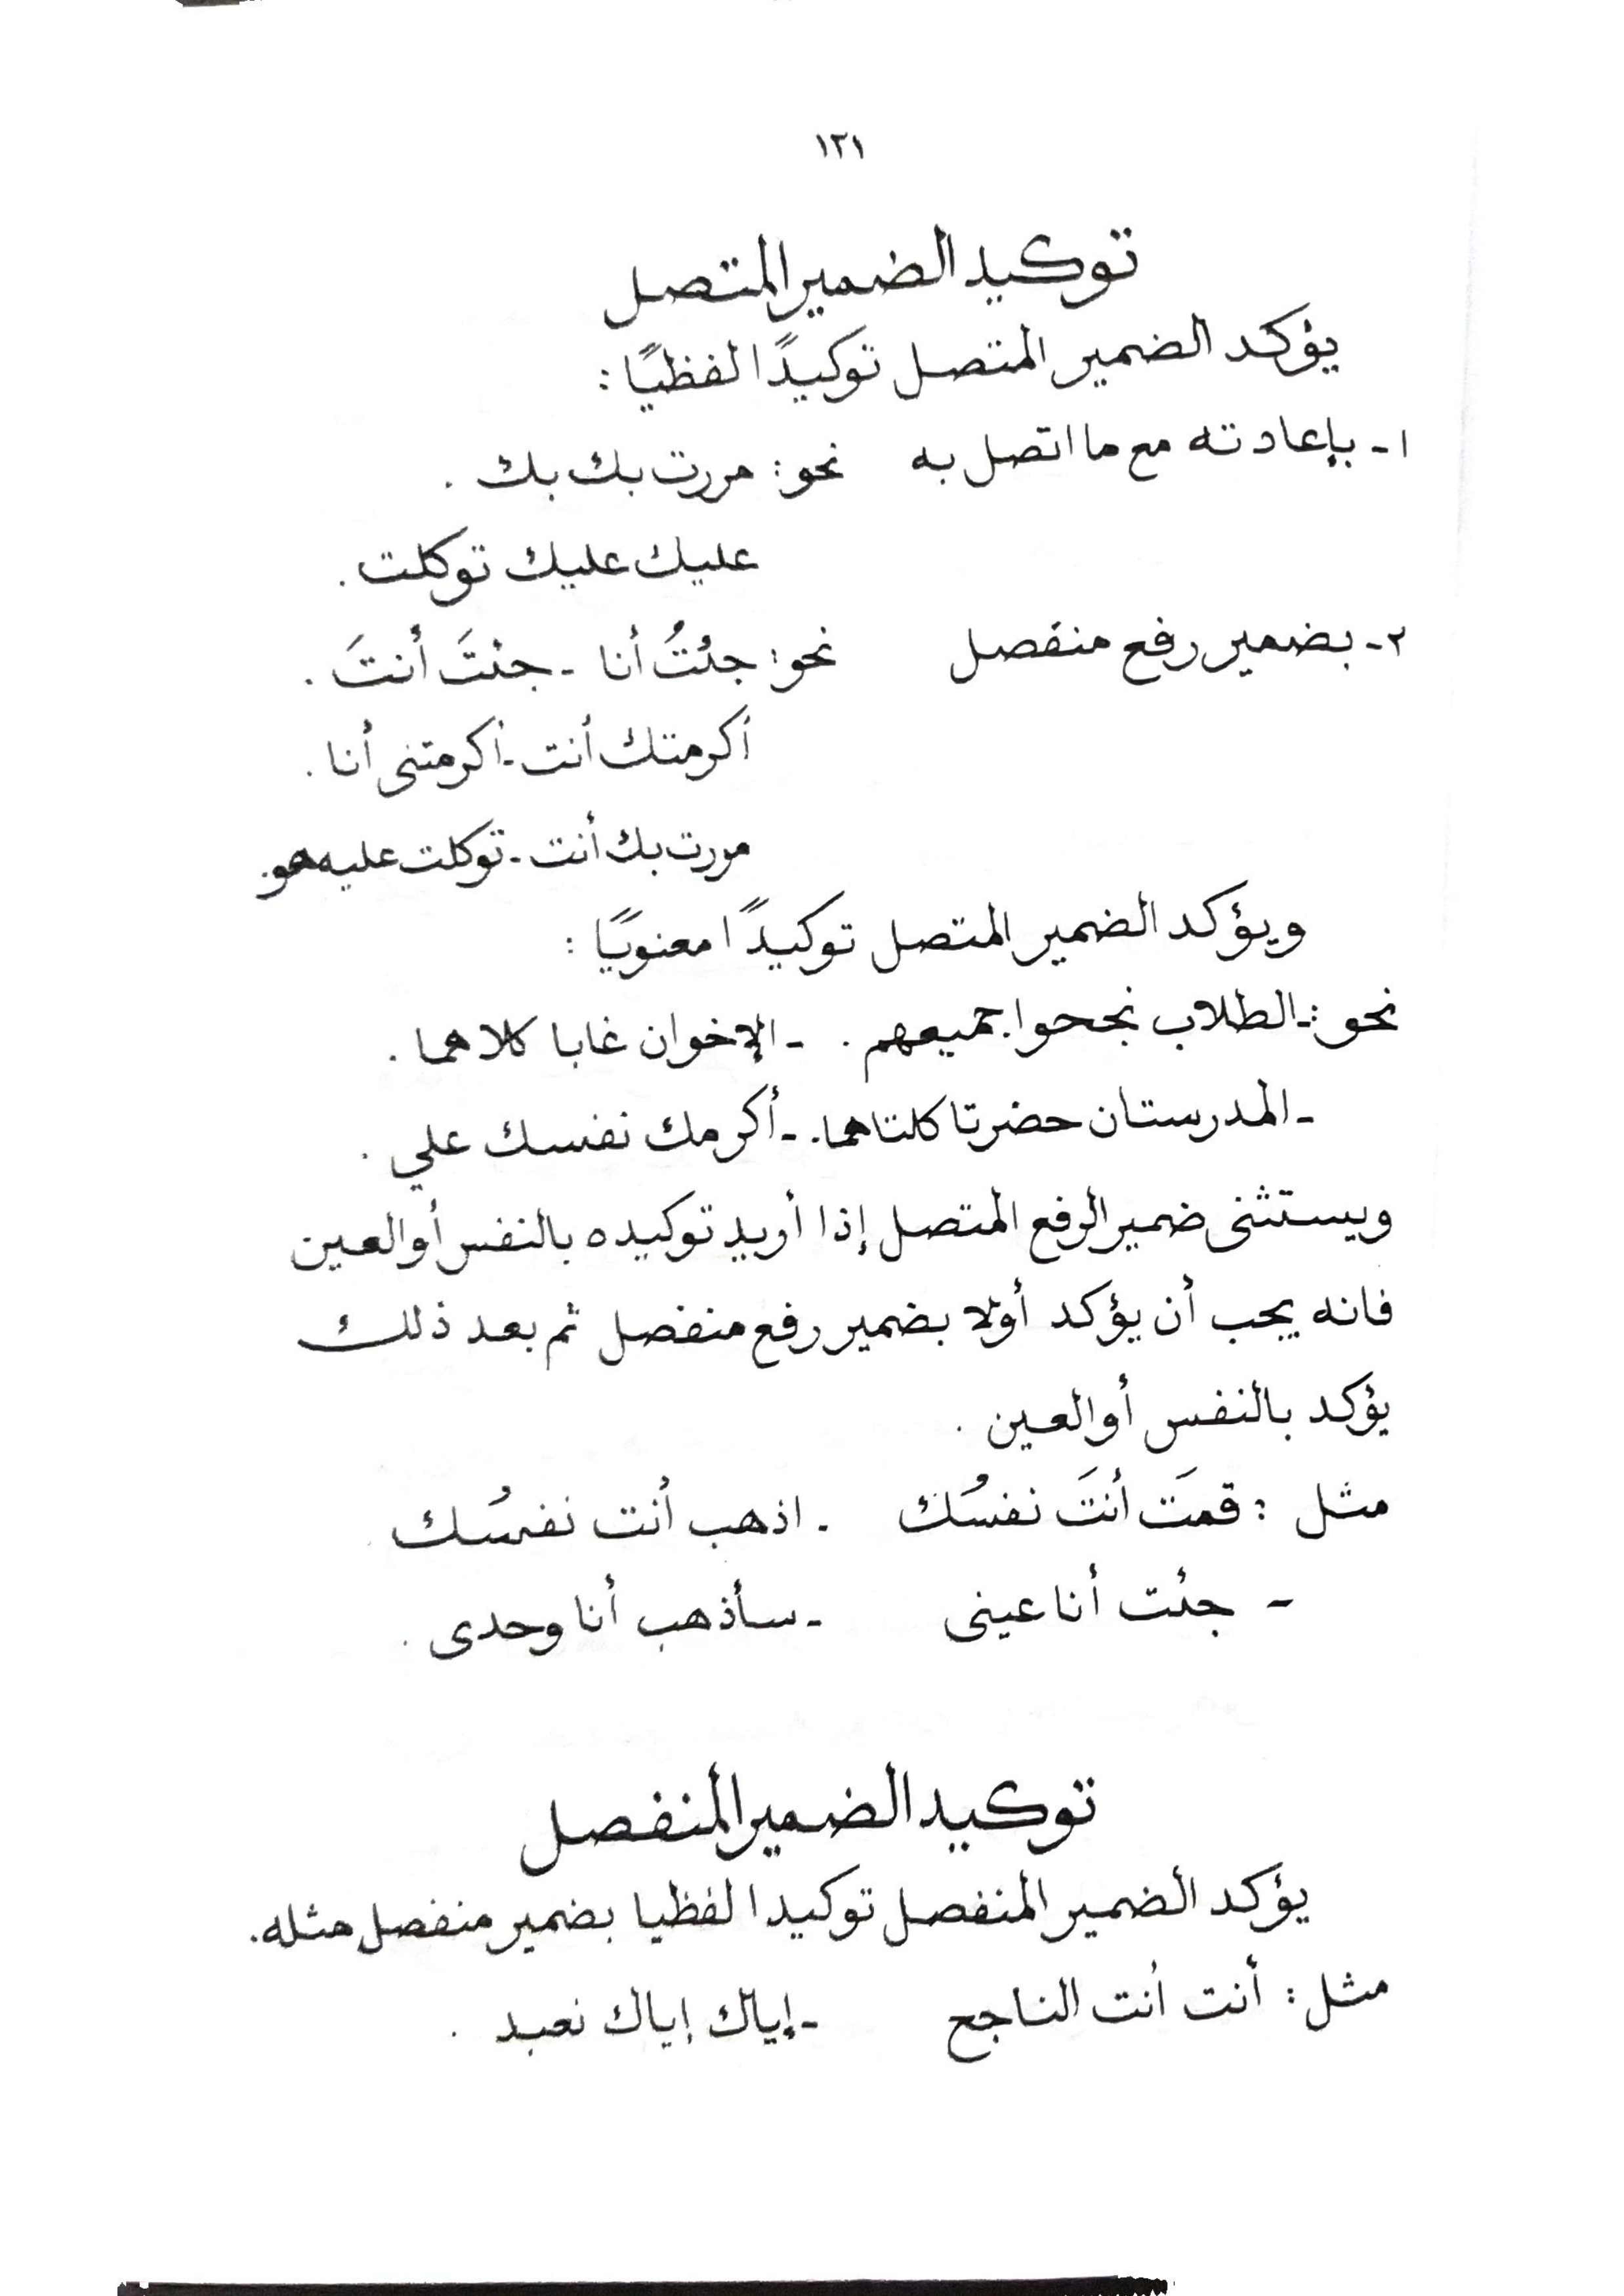 ١٢١
توكيد الضمير المتصل
يؤكد الضمير المتصل توكيدًا لفظيًا :
١ - بإعادته مع ما اتصل به نحو : مررت بك بك .
عليك عليك توكلت .
٢ - بضمير رفع منفصل نحو : جئتُ أنا - جئتَ أنتَ .
أكرمتك أنت - أكرمتنى أنا .
مررت بك أنت - توكلت عليه هو .
ويؤكد الضمير المتصل توكيدًا معنويًا :
نحو : - الطلاب نجحوا جميعهم . - الإخوان غابا كلاهما .
- المدرستان حضرتا كلتاهما . - أكرمك نفسك علي .
ويستثنى ضمير الرفع المتصل إذا أريد توكيده بالنفس أو العين
فانه يجب أن يؤكد أولا بضمير رفع منفصل ثم بعد ذلك
يؤكد بالنفس أو العين .
مثل : قمتَ أنتَ نفسُك - اذهب أنت نفسُك
- جئت أنا عينى - سأذهب أنا وحدى .
توكيد الضمير المنفصل
يؤكد الضمير المنفصل توكيدا لفظيا بضمير منفصل مثله .
مثل : أنت أنت الناجح - إياك إياك نعبد .